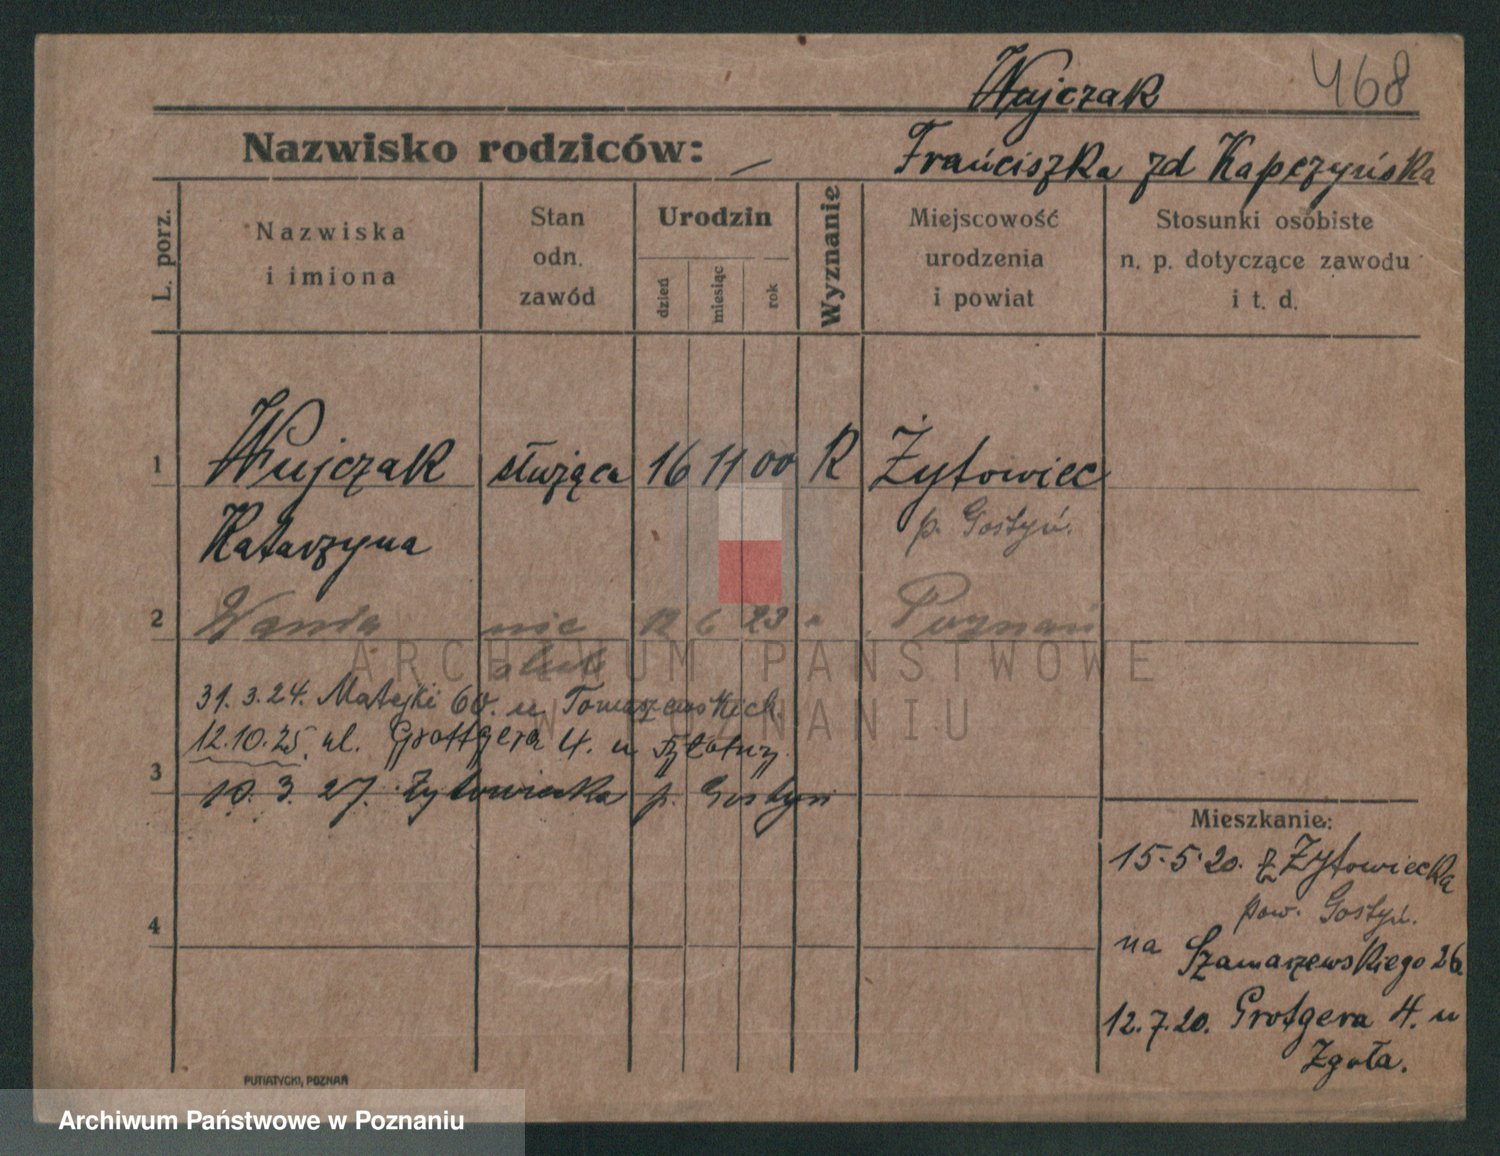 Wujczak
468
Nazwisko rodziców: Franciszka zd Kapczyńska
L. porz.
Nazwiska
i imiona
Stan
odn.
zawód
Urodzin
dzień
miesiąc
rok
Wyznanie
Miejscowość
urodzenia
i powiat
Stosunki osobiste
n. p. dotyczące zawodu
i t. d.
1 Wujczak służąca 16 11 00 R Żytowiec
Katarzyna p. Gostyń.
2 Wanda nie 12 6 23 " Poznań
ślub
31. 3. 24. Matejki 60. u Tomaszewskich.
12.10.25. ul. Grottgera 4. u
3 10. 3. 27. Żytowiecka p. Gostyń
4
Mieszkanie:
15.5.20. z Żytowiecka
pow. Gostyń.
na Szamarzewskiego 26
12.7.20. Grotgera 4. u
Zgoła.
PUTIATYCKI, POZNAŃ
ARCHIWUM PAŃSTWOWE
W POZNANIU
Archiwum Państwowe w Poznaniu